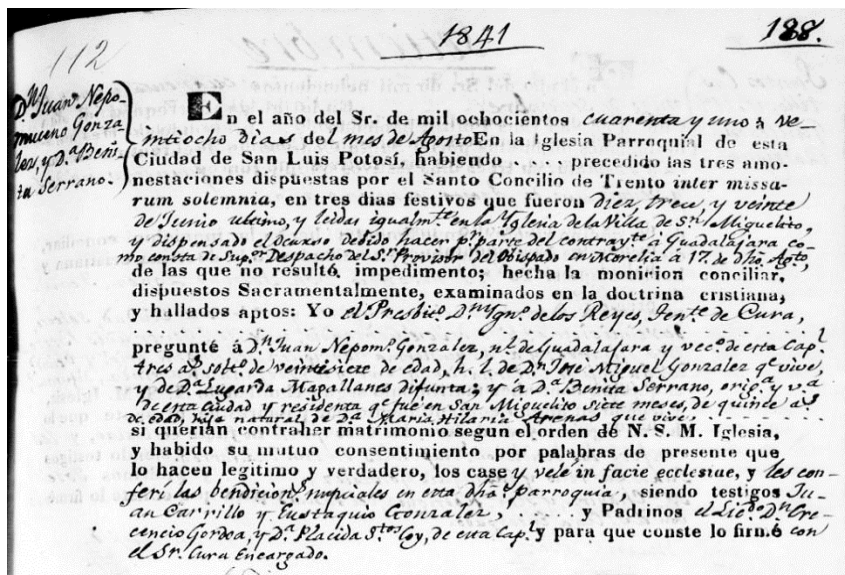 1841
188.
112
Dⁿ Juan Nepo-
muceno Gonza-
lez, y Dª Beni-
ta Serrano.
En el año del Sr. de mil ochocientos cuarenta y uno á ve-
intiocho dias del mes de Agosto En la Iglesia Parroquial de esta
Ciudad de San Luis Potosí, habiendo .... precedido las tres amo-
nestaciones dispuestas por el Santo Concilio de Trento inter missa-
rum solemnia, en tres dias festivos que fueron diez, trece y veinte
de Junio ultimo, y leidas igualmte en la Yglesia de la Villa de Sn Miguelito,
y dispensado el ocurso debido hacer pr parte del contrayte á Guadalajara co-
mo consta de Supor Despacho del Sr Provisor del Obispado en Morelia á 17. de dho. Agto,
de las que no resultó impedimento; hecha la monicion conciliar,
dispuestos Sacramentalmente, examinados en la doctrina cristiana,
y hallados aptos: Yo el Presbito Dn Ygno de los Reyes, Tente de Cura,
pregunté á Dn Juan Nepomo Gonzalez, nl de Guadalajara y veco de esta Capl
tres as. solto de veintisiete de edad, h. l. de Dn José Miguel Gonzalez qe vive,
y de Dª Lugarda Magallanes difunta; y á Dª Benita Serrano, origª y vª
de esta Ciudad y residenta qe fué en San Miguelito siete meses, de quince as
de edad, hija natural de Dª Maria Hilaria Arenas que vive
si querian contraher matrimonio segun el orden de N. S. M. Iglesia,
y habido su mutuo consentimiento por palabras de presente que
lo hacen legitimo y verdadero, los case y vele in facie ecclesiae, y les con-
ferí las bendicions nupciales en esta dha parroquia, siendo testigos Ju-
an Carrillo y Eustaquio Gonzalez, y Padrinos el Licdo Dn Cre-
cencio Gordoa, y Dª Placida Stos Coy, de esta Capl y para que conste lo firmé con
el Sr. Cura Encargado.